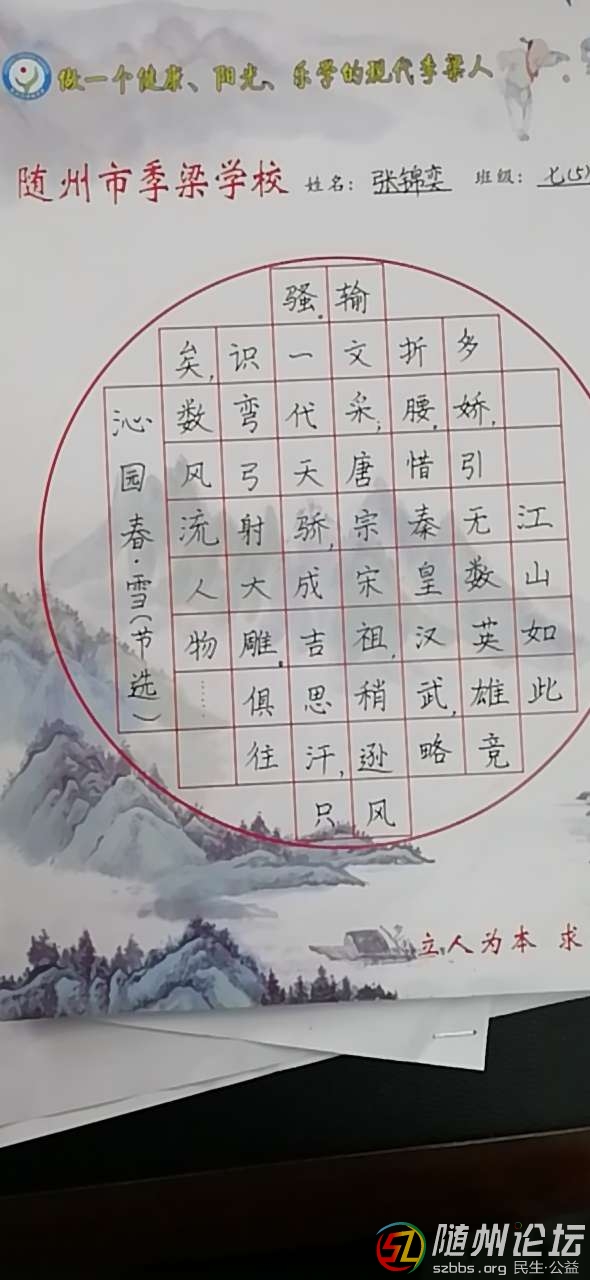 做一个健康、阳光、乐学的现代季梁人
随州市季梁学校 姓名：张锦奕 班级：七(5)
江山如此
多娇,引无数英雄竞
折腰。惜秦皇汉武,略
输文采;唐宗宋祖,稍逊风
骚。一代天骄,成吉思汗,只
识弯弓射大雕。俱往
矣,数风流人物……
沁园春·雪(节选)
立人为本 求
随州论坛
szbbs.org 民生·公益